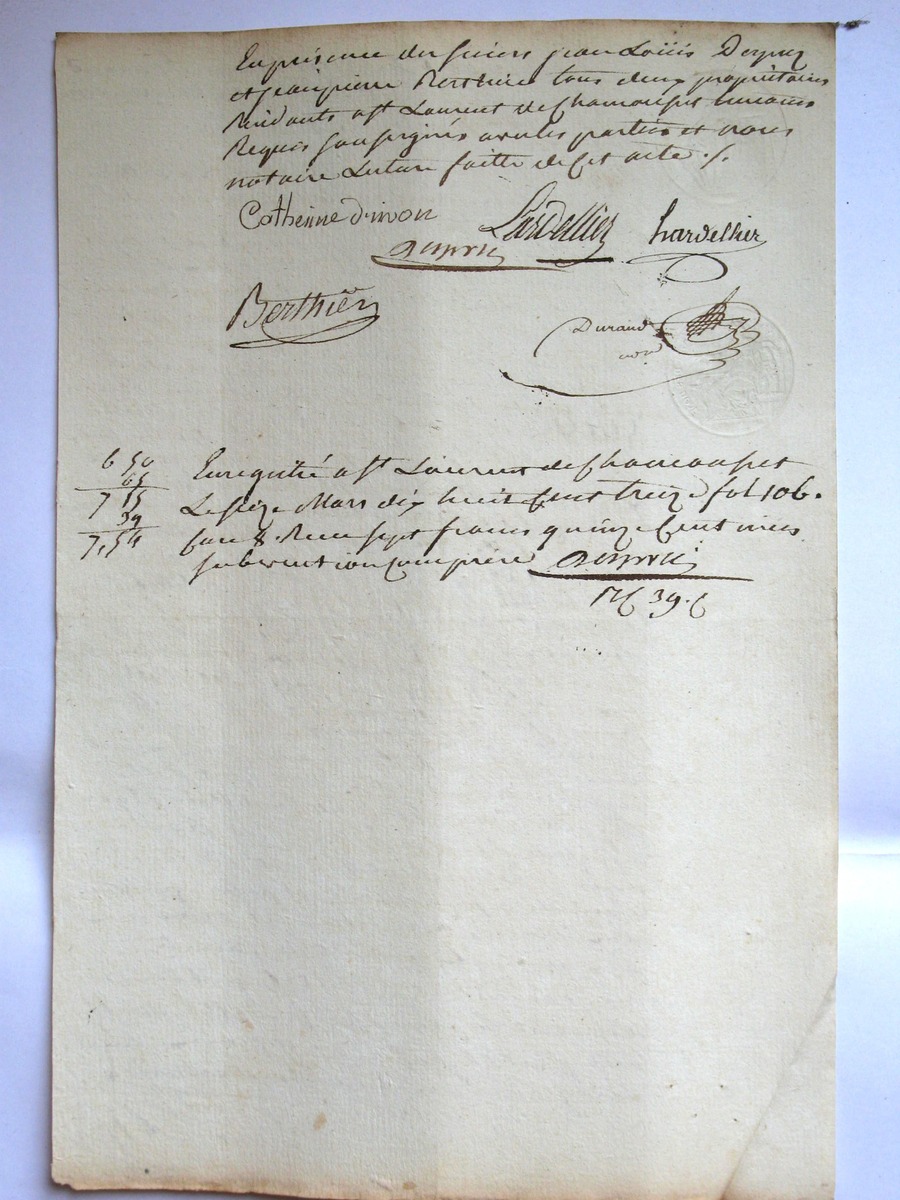 En présence des sieurs jean Loüis
et jean pierre Berthier tous deux propriétaires
Residants a St Laurent de Chamousset temoins
Requis soussignés avec les parties et nous
notaire Lecture faitte de Cet acte ./.
Catherine dimon
Lardellier
Lardellier
Berthier
Durand
6 50
65
7 15
39
7,54
Enregistré a St Laurent de Chamousset
Le seize Mars dix huit Cent treize fol 106.
Case 8. Recu sept francs quinze Centimes
subvention Comprise
39. C